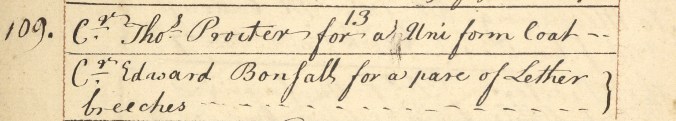 13
109. Cr. Thos Procter for a Uniform Coat --
Cr. Edward Bonsall for a pare of Lether
breeches